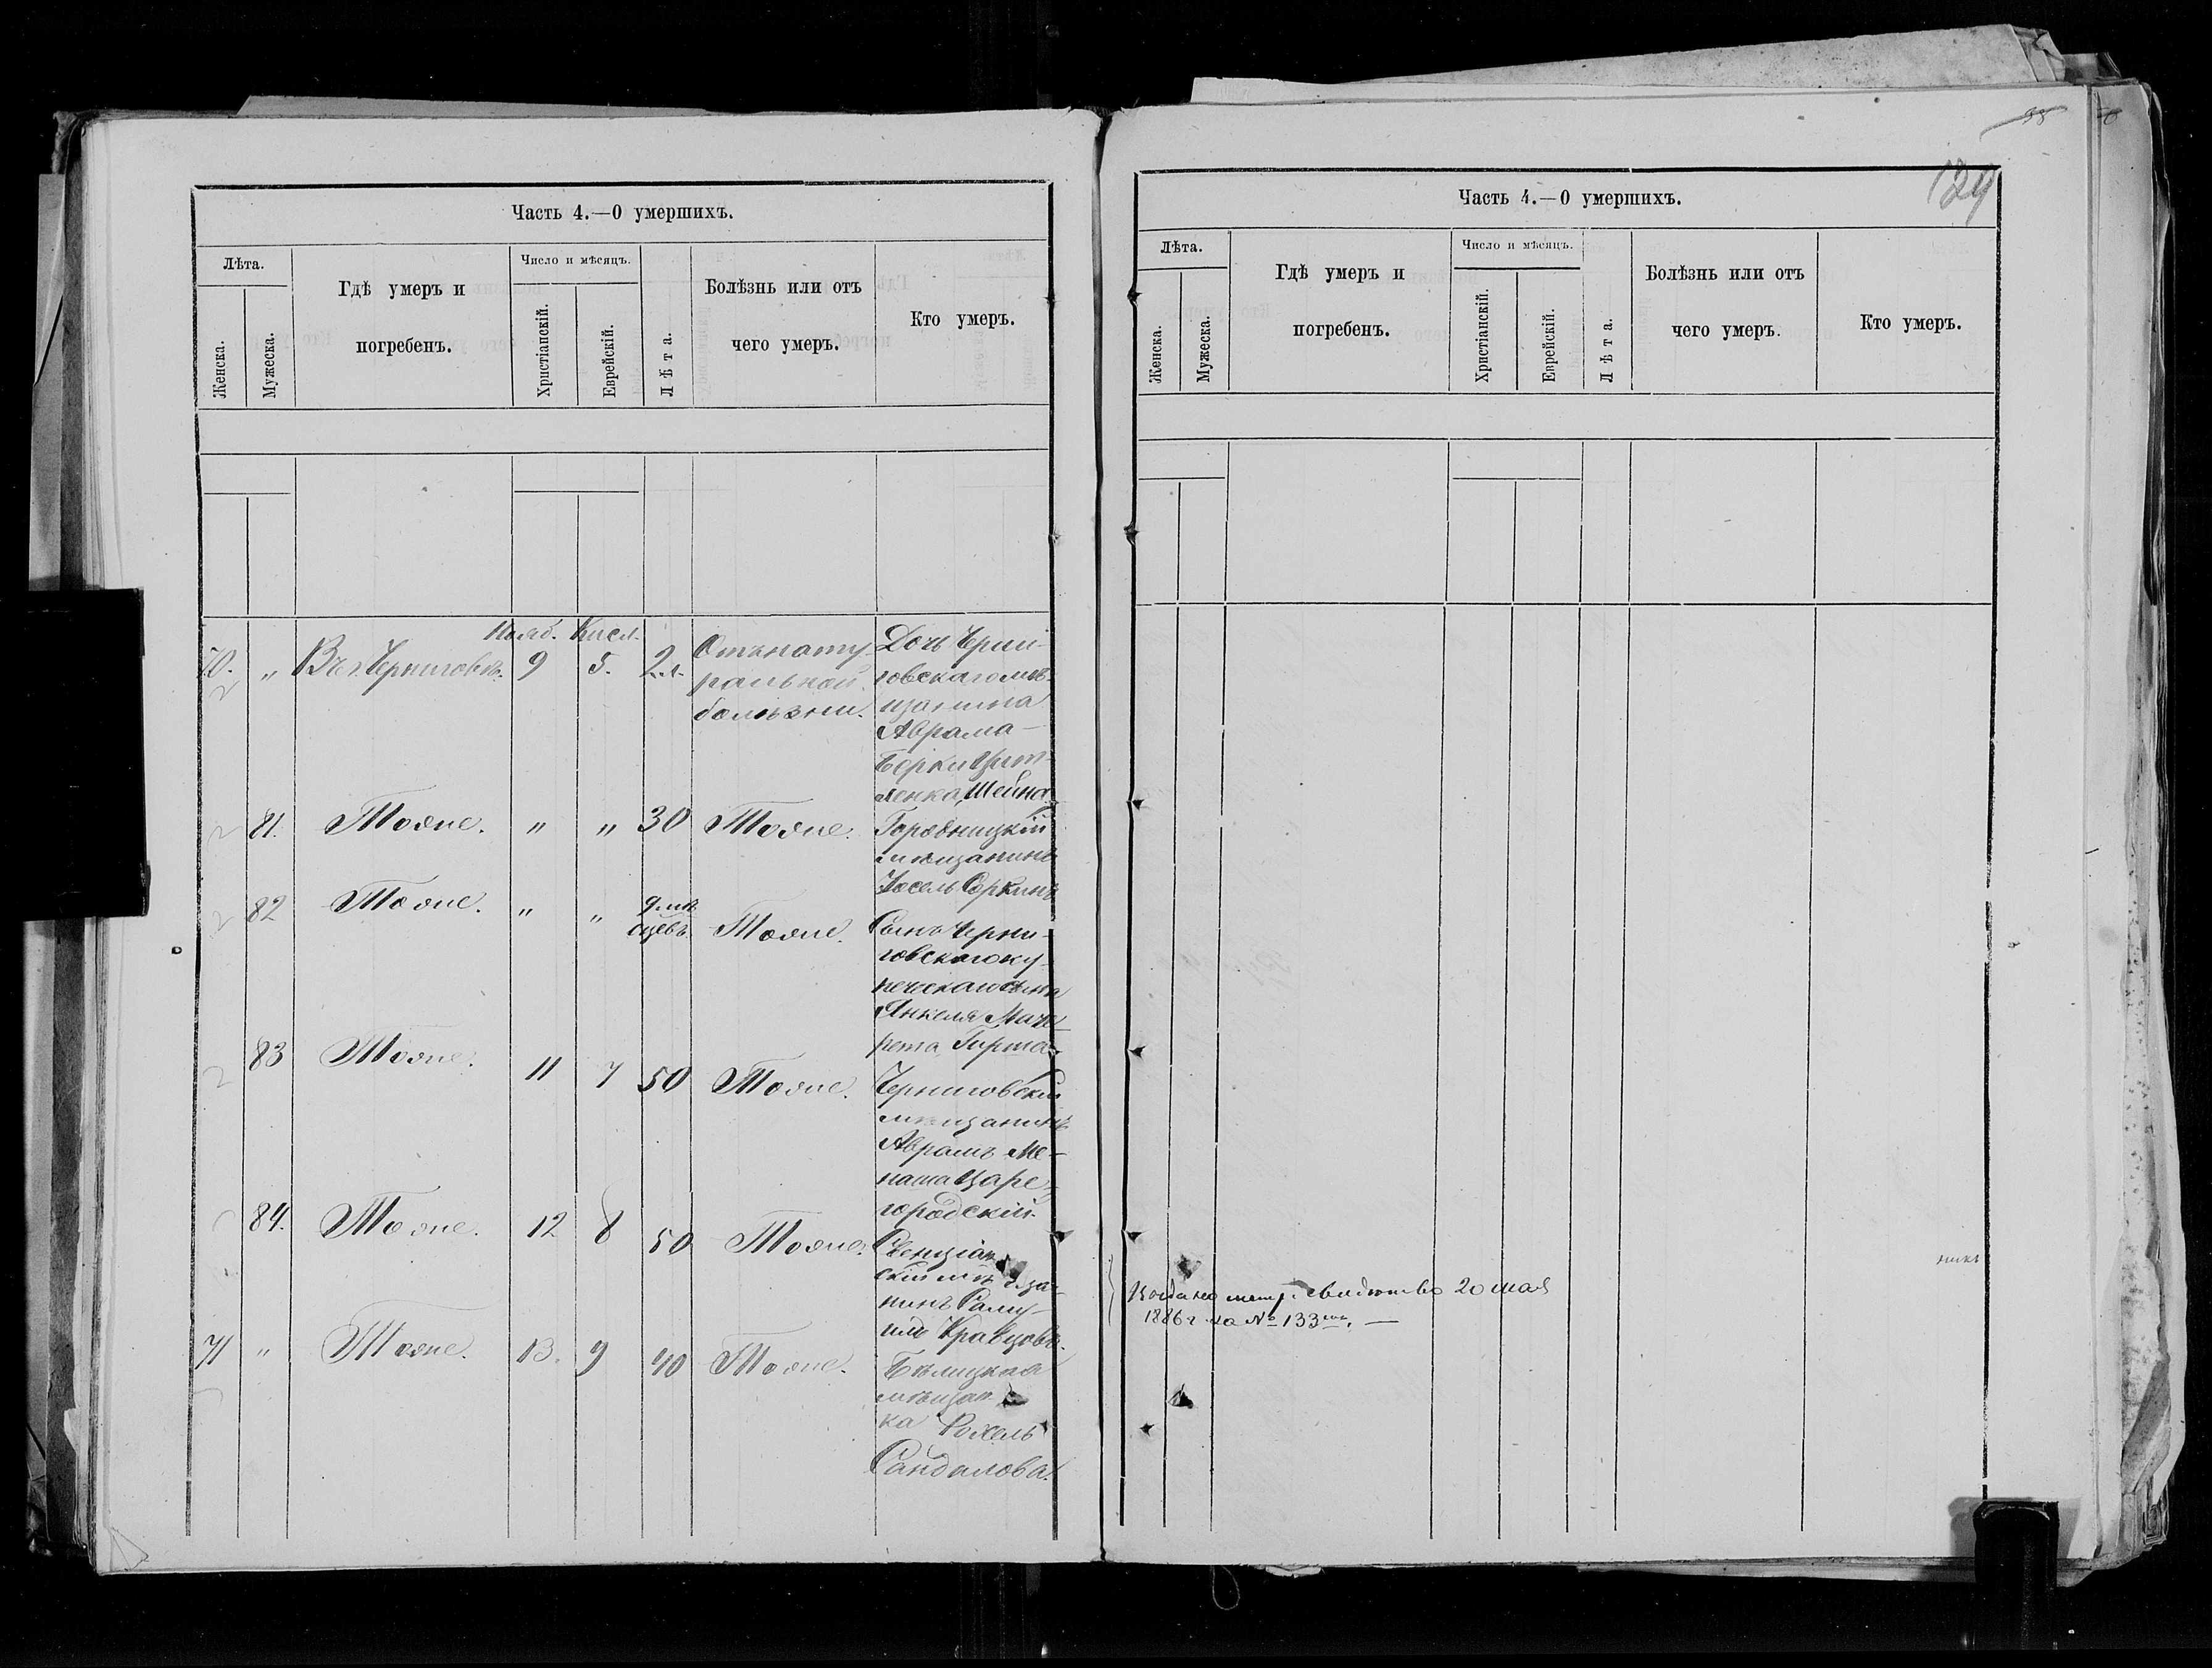 Часть 4.—О умершихъ.
Лѣта.
Женска.
Мужеска.
Гдѣ умеръ и
погребенъ.
Число и мѣсяцъ.
Христіанскій.
Еврейскій.
Лѣта.
Болѣзнь или отъ
чего умеръ.
Кто умеръ.
Нояб. Кисл.
70. " Въ г. Черниговѣ. 9 5. 2 л. Отъ нату-
ральной
болѣзни.
Дочь Черни-
говскаго мѣ-
щанина
Аврама-
Берки Цит-
ленка, Шейна
81. Тоже. " " 30 Тоже. Городницкій
мѣщанинъ
Іосель Соркинъ
82 Тоже. " " 9 мѣ-
сяцевъ. Тоже. Сынъ Черни-
говскаго ку-
печескаго сына
Янкеля Маче-
рета, Гирша
83 Тоже. 11 7 50 Тоже. Черниговскій
мѣщанинъ
Аврамъ Ме-
наша Царе-
городскій
84. Тоже. 12 8 50 Тоже. Свенціан-
скій мѣща-
нинъ Саму-
илъ Кравцовъ.
71 " Тоже. 13. 9 40 Тоже. Бѣлицкая
мѣщан-
ка Рохель
Сандалова.
129
Часть 4.—О умершихъ.
Лѣта.
Женска.
Мужеска.
Гдѣ умеръ и
погребенъ.
Число и мѣсяцъ.
Христіанскій.
Еврейскій.
Лѣта.
Болѣзнь или отъ
чего умеръ.
Кто умеръ.
никъ
метр. свидѣтство 20 мая
1886 г. за № 133